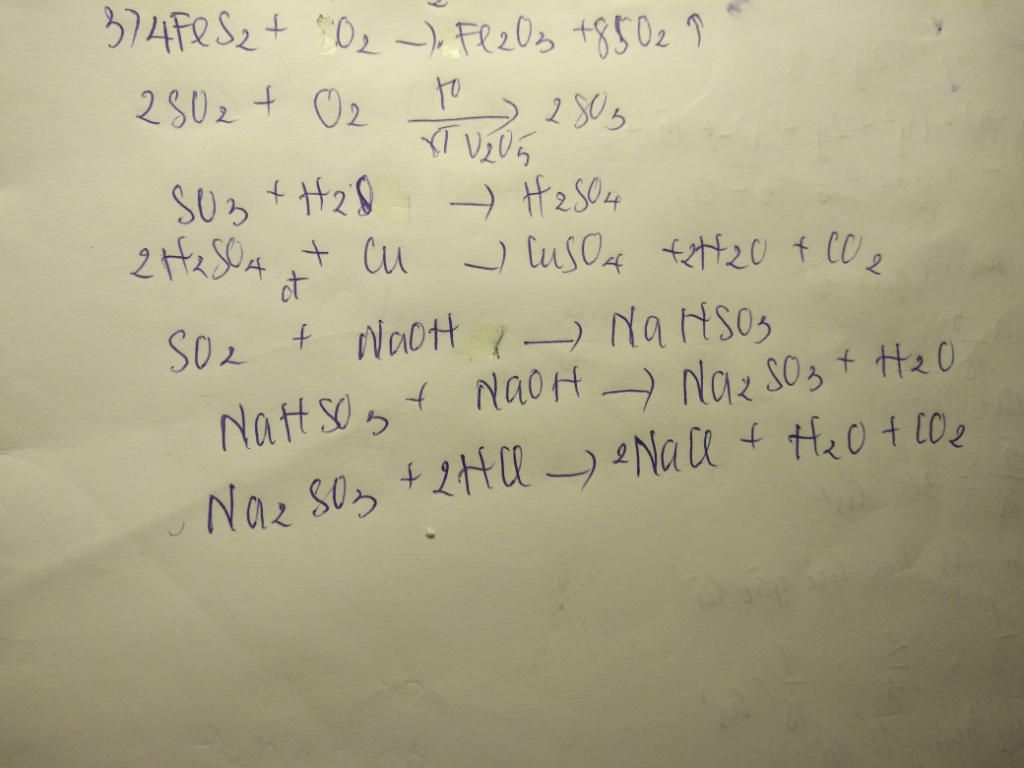 3) 4FeS2 + O2 → Fe2O3 + 8SO2 ↑
2SO2 + O2 → 2SO3
to
xT V2O5
SO3 + H2O → H2SO4
2H2SO4 + Cu → CuSO4 + 2H2O + CO2
đ
SO2 + NaOH → NaHSO3
NaHSO3 + NaOH → Na2SO3 + H2O
Na2SO3 + 2HCl → 2NaCl + H2O + CO2